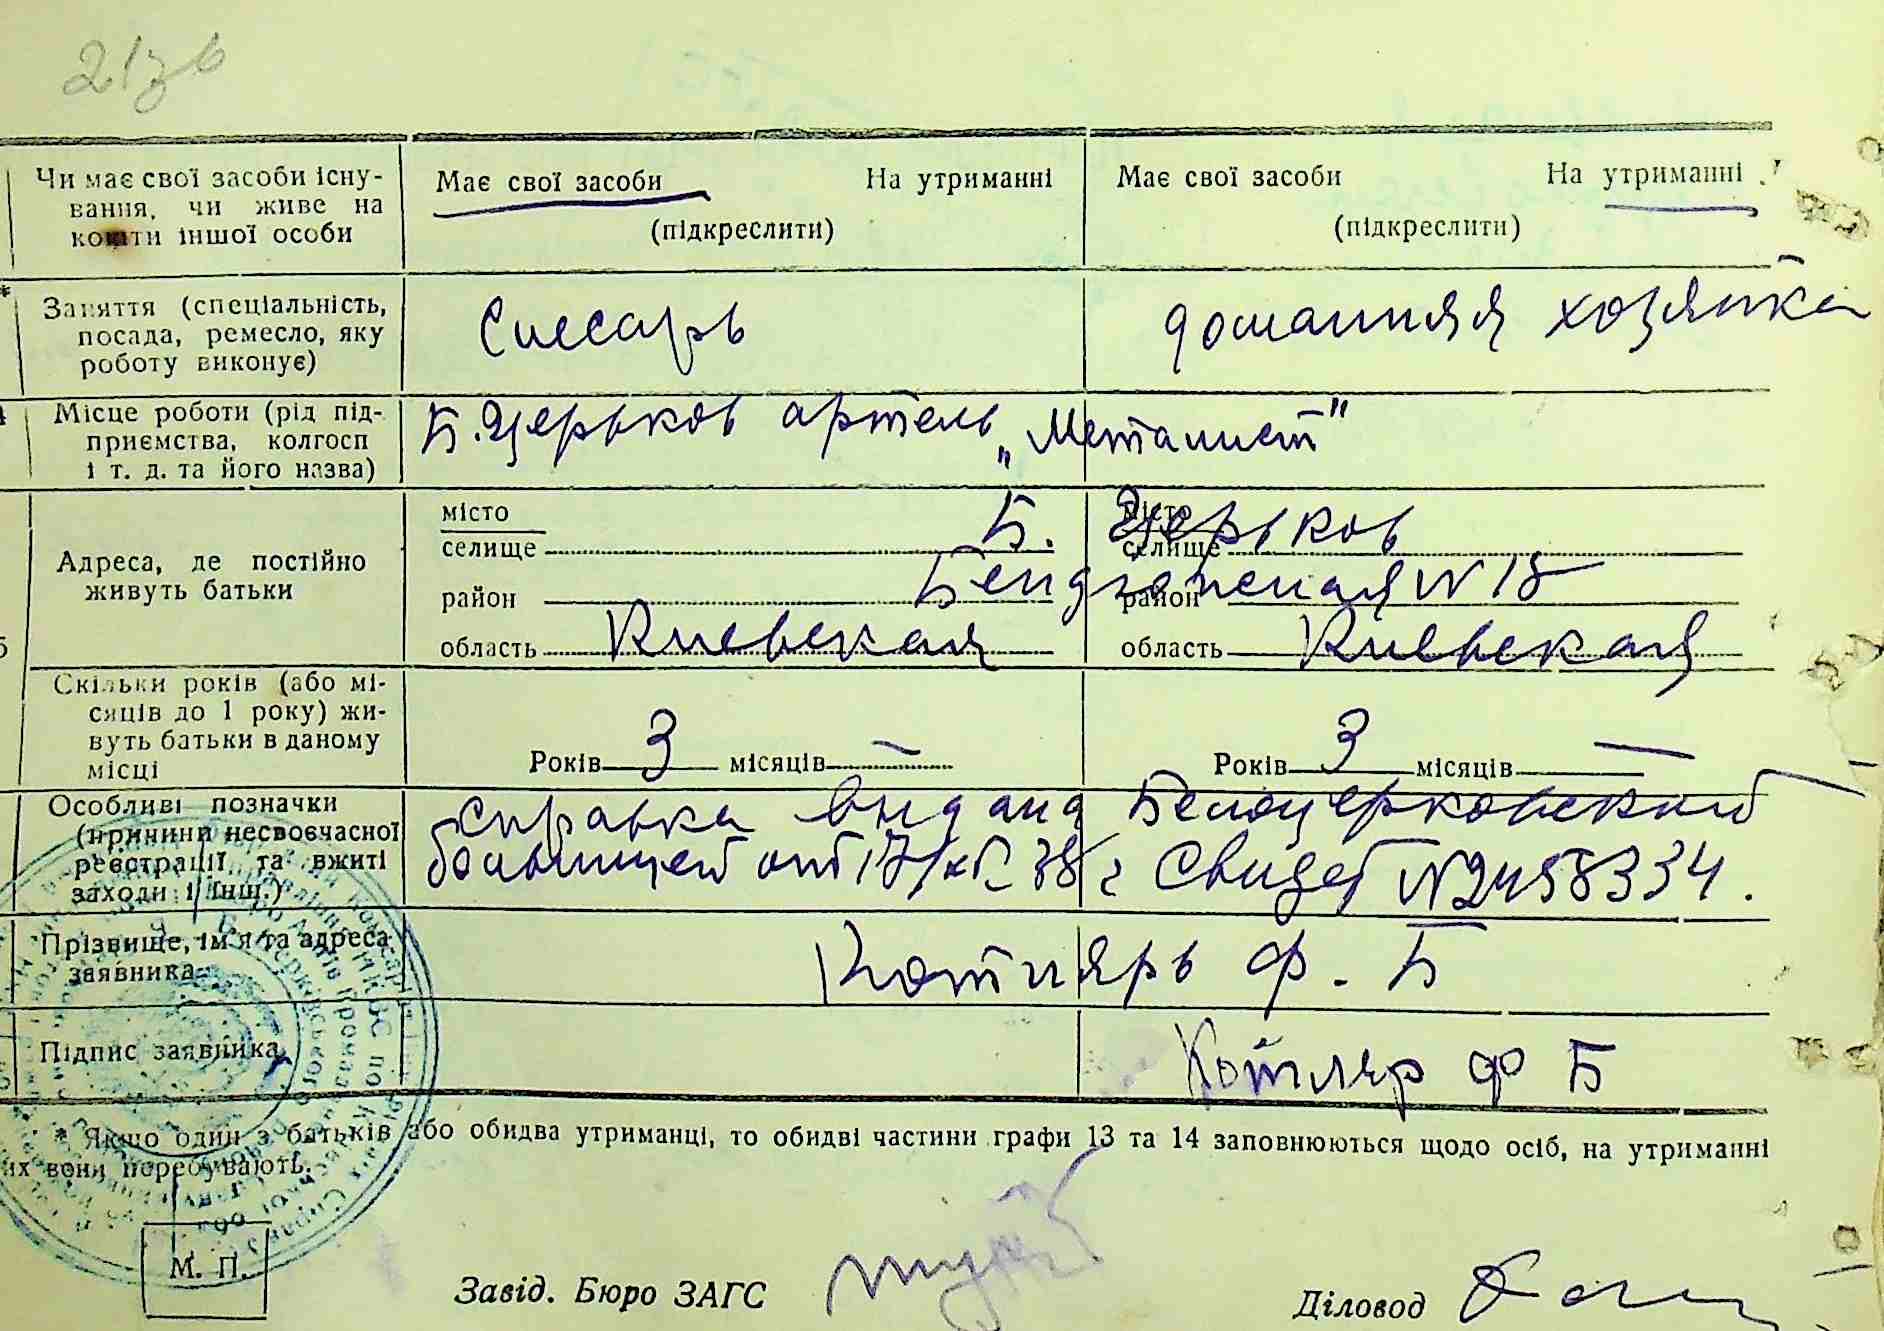 Чи має свої засоби існу-
вання, чи живе на
кошти іншої особи
Має свої засоби На утриманні
(підкреслити)
Має свої засоби На утриманні
(підкреслити)
Заняття (спеціальність,
посада, ремесло, яку
роботу виконує)
Слесарь
домашняя хозяйка
Місце роботи (рід під-
приємства, колгосп
і т. д. та його назва)
Б. Церьков артель „Металист"
Адреса, де постійно
живуть батьки
місто
селище
район
область Киевская
місто
селище
район
область Киевская
Б. Церьков
№ 18
Скільки років (або мі-
сяців до 1 року) жи-
вуть батьки в даному
місці
Років 3 місяців —
Років 3 місяців —
Особливі позначки
(причини несвоєчасної
реєстрації та вжиті
заходи і інш.)
справка выдана Белоцерковской
больницей от 17/ 38 г Свидет №2458334.
Прізвище, ім'я та адреса
заявника
Котлярь Ф. Б
Підпис заявника
Котляр Ф Б
* Якщо один з батьків або обидва утриманці, то обидві частини графи 13 та 14 заповнюються щодо осіб, на утриманні
их вони перебувають.
М. П.
Завід. Бюро ЗАГС
Діловод